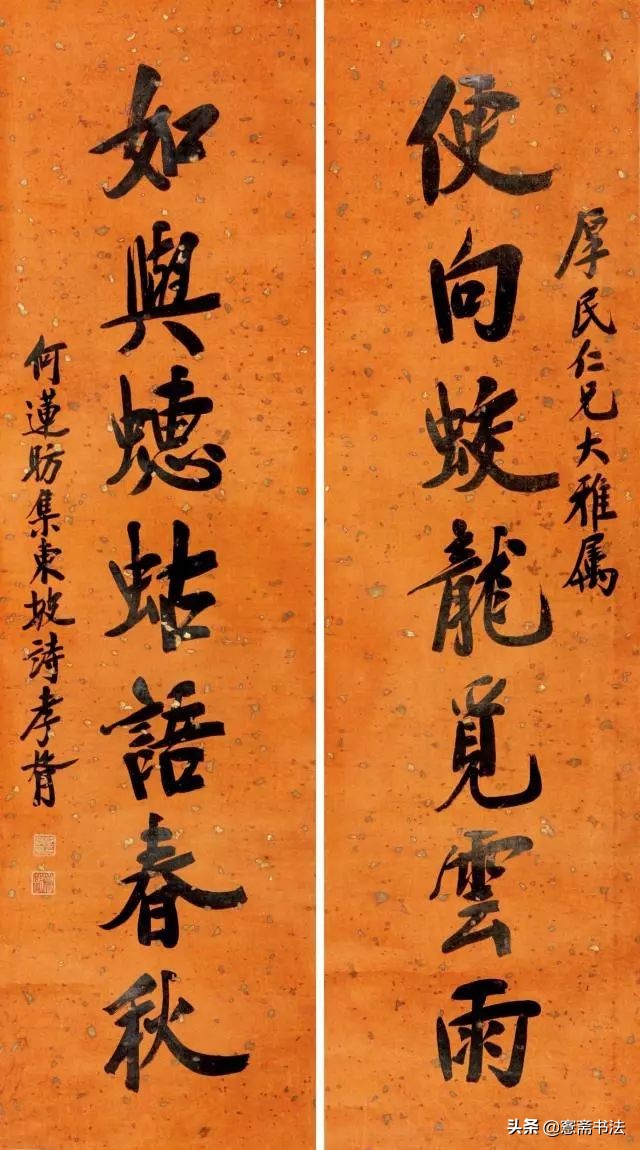 厚民仁兄大雅属
便向蛟龍覓雲雨
如與蟪蛄語春秋
何蓮舫集東坡詩孝胥
头条@寋斋书法